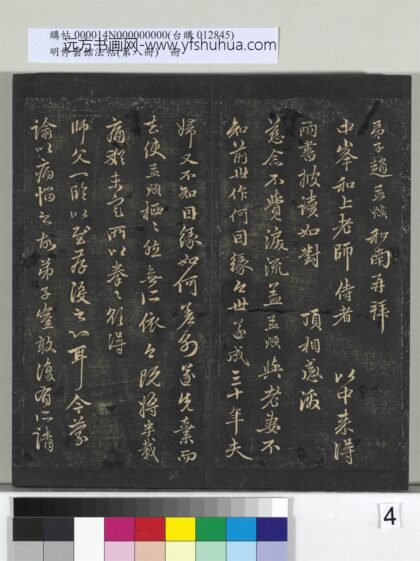 購帖 000014N000000000(台購 012845)
远方书画网-www.yfshuhua.com
明停雲館法帖(第八冊) 冊
弟子趙孟頫和南再拜
中峯和上老師侍者 以中来得
兩書披讀如對 頂相感激
慈念不覺淚流盖孟頫與老妻不
知前世作何因緣今世遂成三十年夫
婦又不知因緣如何差別遂先棄而
去使孟頫栖々然無所依今既將半載
痛猶未定所以拳々欲得
師父一臨以至存没之心耳今蒙
諭以病惱之故弟子豈敢復有所請
4